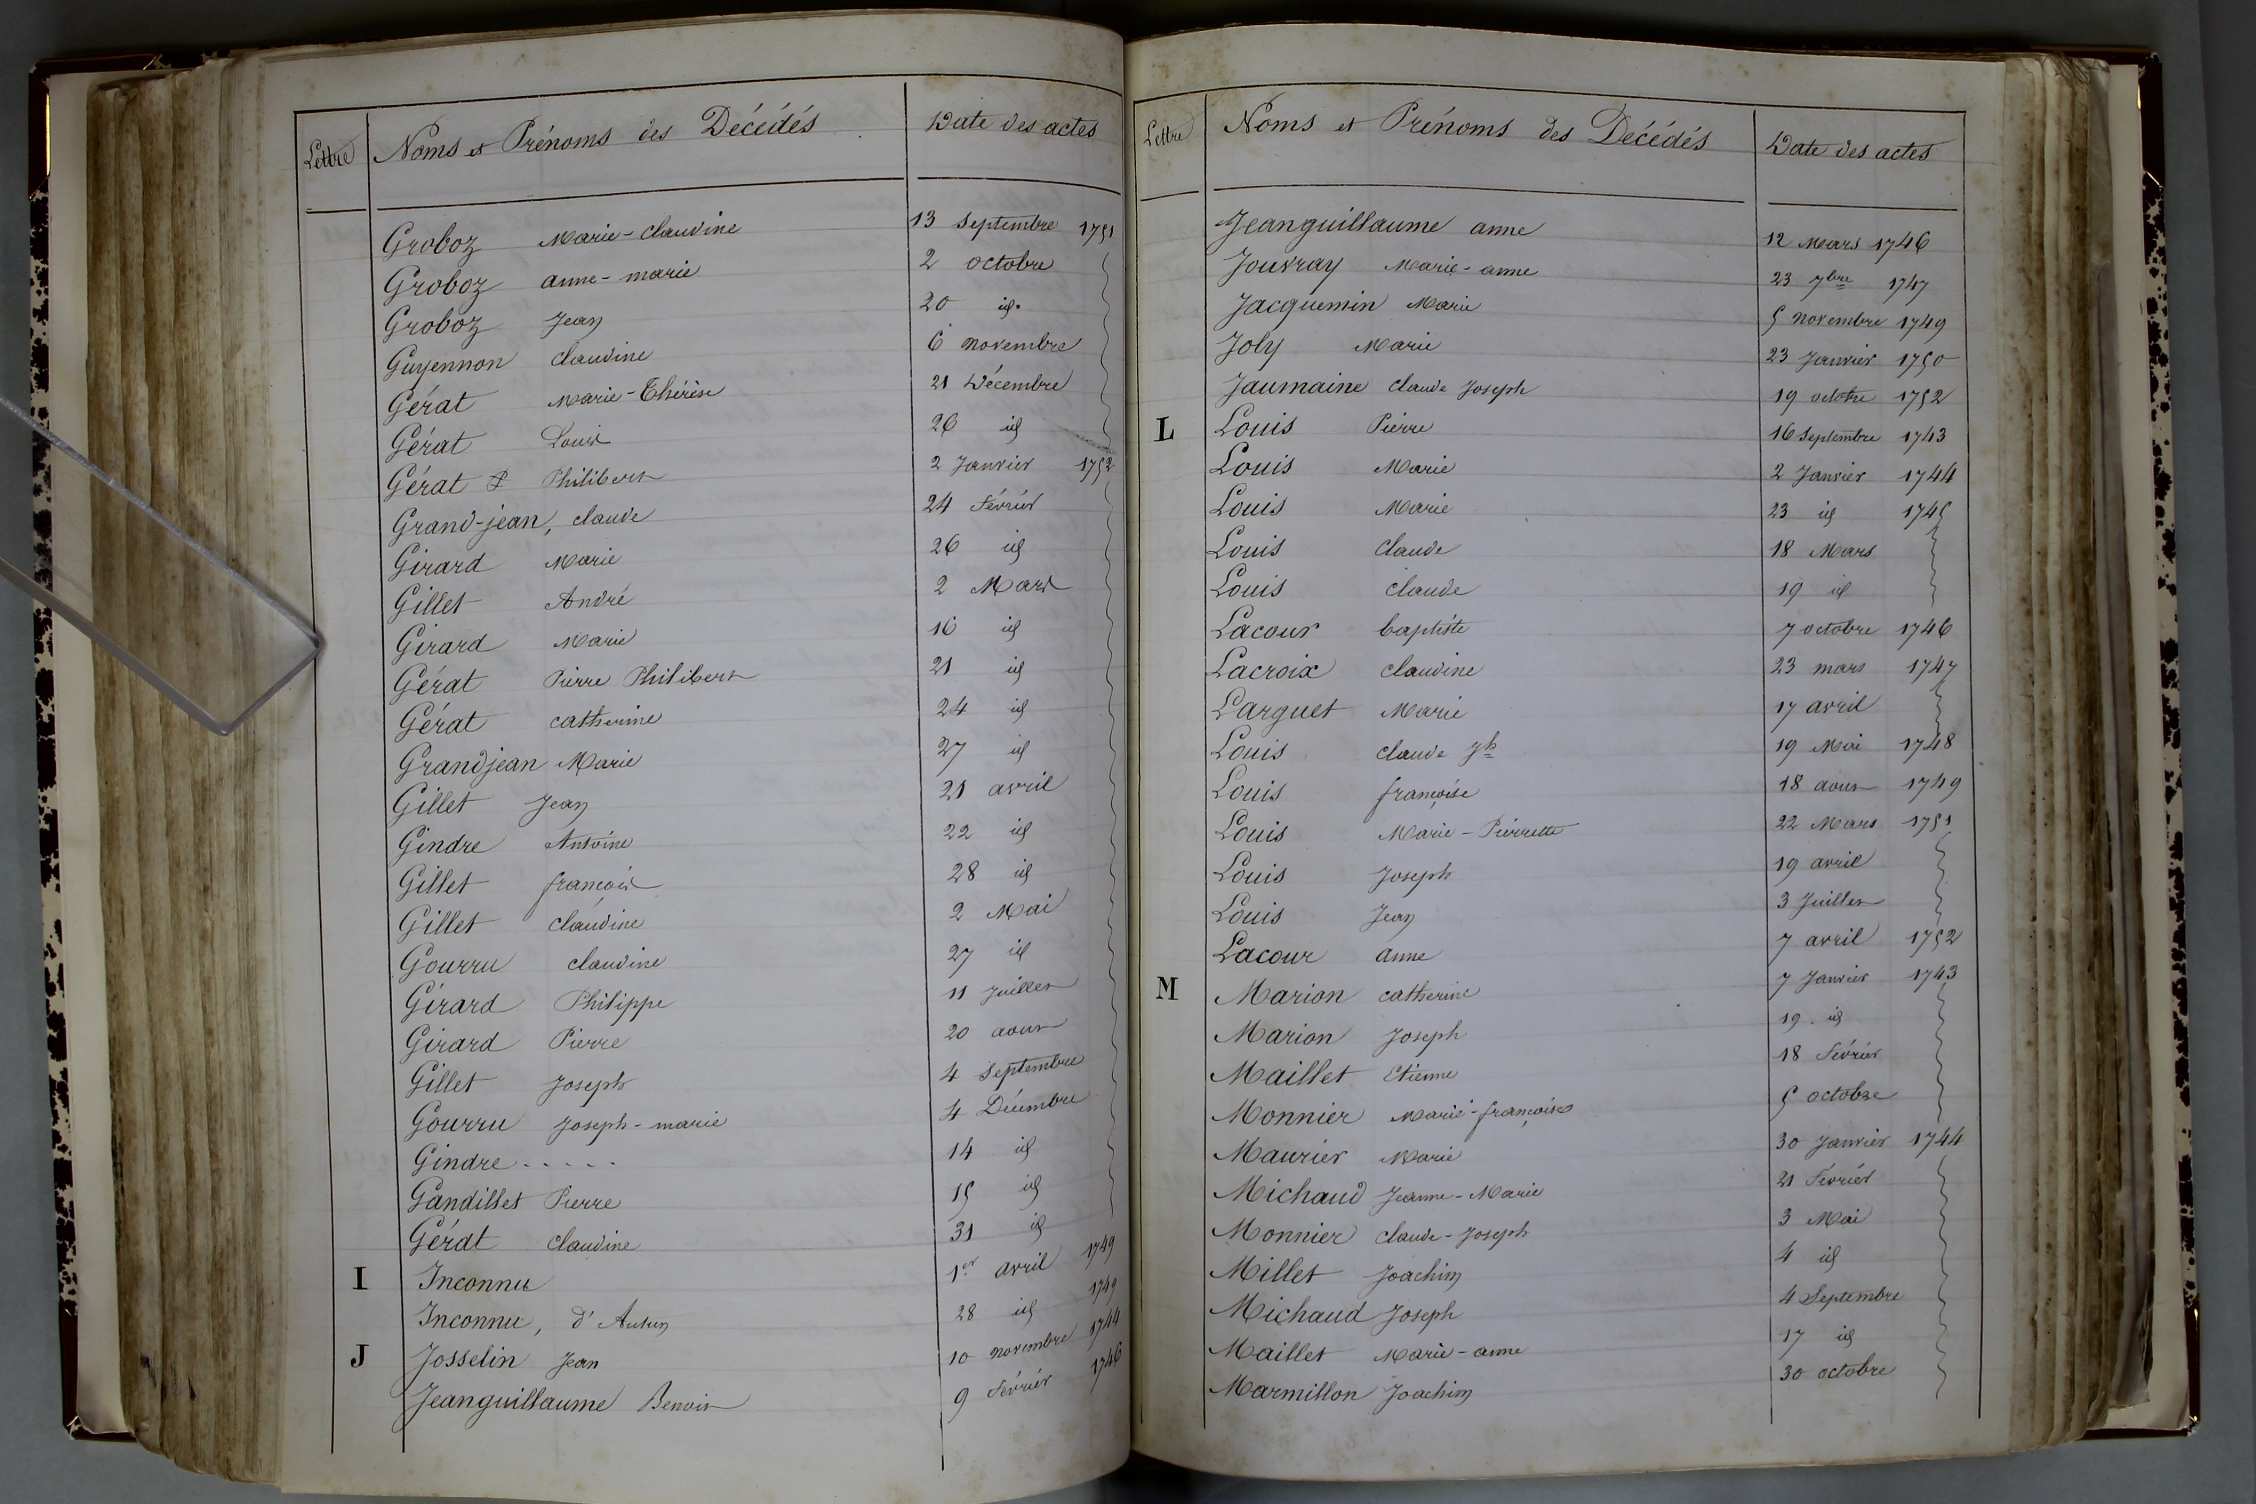 Lettre Noms et Prénoms des Décédés Date des actes
Groboz Marie-Claudine 13 Septembre 1751
Groboz anne-marie 2 octobre
Groboz Jean 20 id.
Guyennon Claudine 6 novembre
Gérat Marie-Thérèse 21 Décembre
Gérat Louis 26 id
Gérat Philibert 2 Janvier 1752
Grand-jean, claude 24 Février
Girard Marie 26 id
Gillet André 2 Mars
Girard Marie 16 id
Gérat Pierre Philibert 21 id
Gérat catherine 24 id
Grandjean Marie 27 id
Gillet Jean 21 avril
Gindre Antoine 22 id
Gillet françois 28 id
Gillet claudine 2 Mai
Gourru claudine 27 id
Girard Philippe 11 Juillet
Girard Pierre 20 aout
Gillet Joseph 4 Septembre
Gourru Joseph-marie 4 Décembre
Gindre ..... 14 id
Gandillet Pierre 15 id
Gérat claudine 31 id
I Inconnu 1er avril 1749
Inconnu, d'Autun 28 id 1749
J Josselin Jean 10 novembre 1744
Jeanguillaume Benoit 9 Février 1746
Lettre Noms et Prénoms des Décédés Date des actes
Jeanguillaume anne 12 Mars 1746
Jouvray Marie-anne 23 7bre 1747
Jacquemin Marie 5 novembre 1749
Joly Marie 23 Janvier 1750
Jaumaine Claude Joseph 19 octobre 1752
L Louis Pierre 16 Septembre 1743
Louis Marie 2 Janvier 1744
Louis Marie 23 id 1745
Louis Claude 18 Mars
Louis claude 19 id
Lacour baptiste 7 octobre 1746
Lacroix claudine 23 mars 1747
Larguet Marie 17 avril
Louis claude Jh 19 Mai 1748
Louis françoise 18 aout 1749
Louis Marie-Pierrette 22 Mars 1751
Louis Joseph 19 avril
Louis Jean 3 Juillet
Lacour anne 7 avril 1752
M Marion catherine 7 Janvier 1743
Marion Joseph 19 id
Maillet Etienne 18 Février
Monnier Marie-françoise 5 octobre
Maurier Marie 30 Janvier 1744
Michaud Jeanne-Marie 21 Février
Monnier Claude-Joseph 3 Mai
Millet Joachim 4 id
Michaud Joseph 4 Septembre
Maillet Marie-anne 17 id
Marmillon Joachim 30 octobre